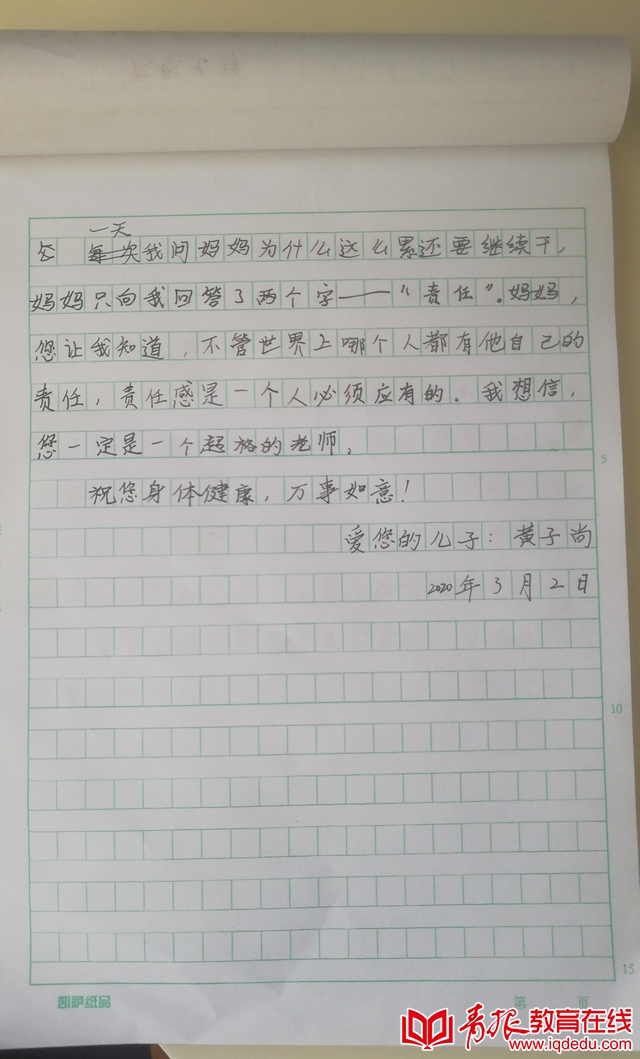 一天
每次我问妈妈为什么这么累还要继续干，
妈妈只向我回答了两个字——“责任”。妈妈，
您让我知道，不管世界上哪个人都有他自己的
责任，责任感是一个人必须应有的。我想信，
您一定是一个超格的老师。
祝您身体健康，万事如意！
爱您的儿子：黄子尚
2020年3月2日
5
10
15
凯萨纸品
第 页
青报教育在线
www.iqdedu.com